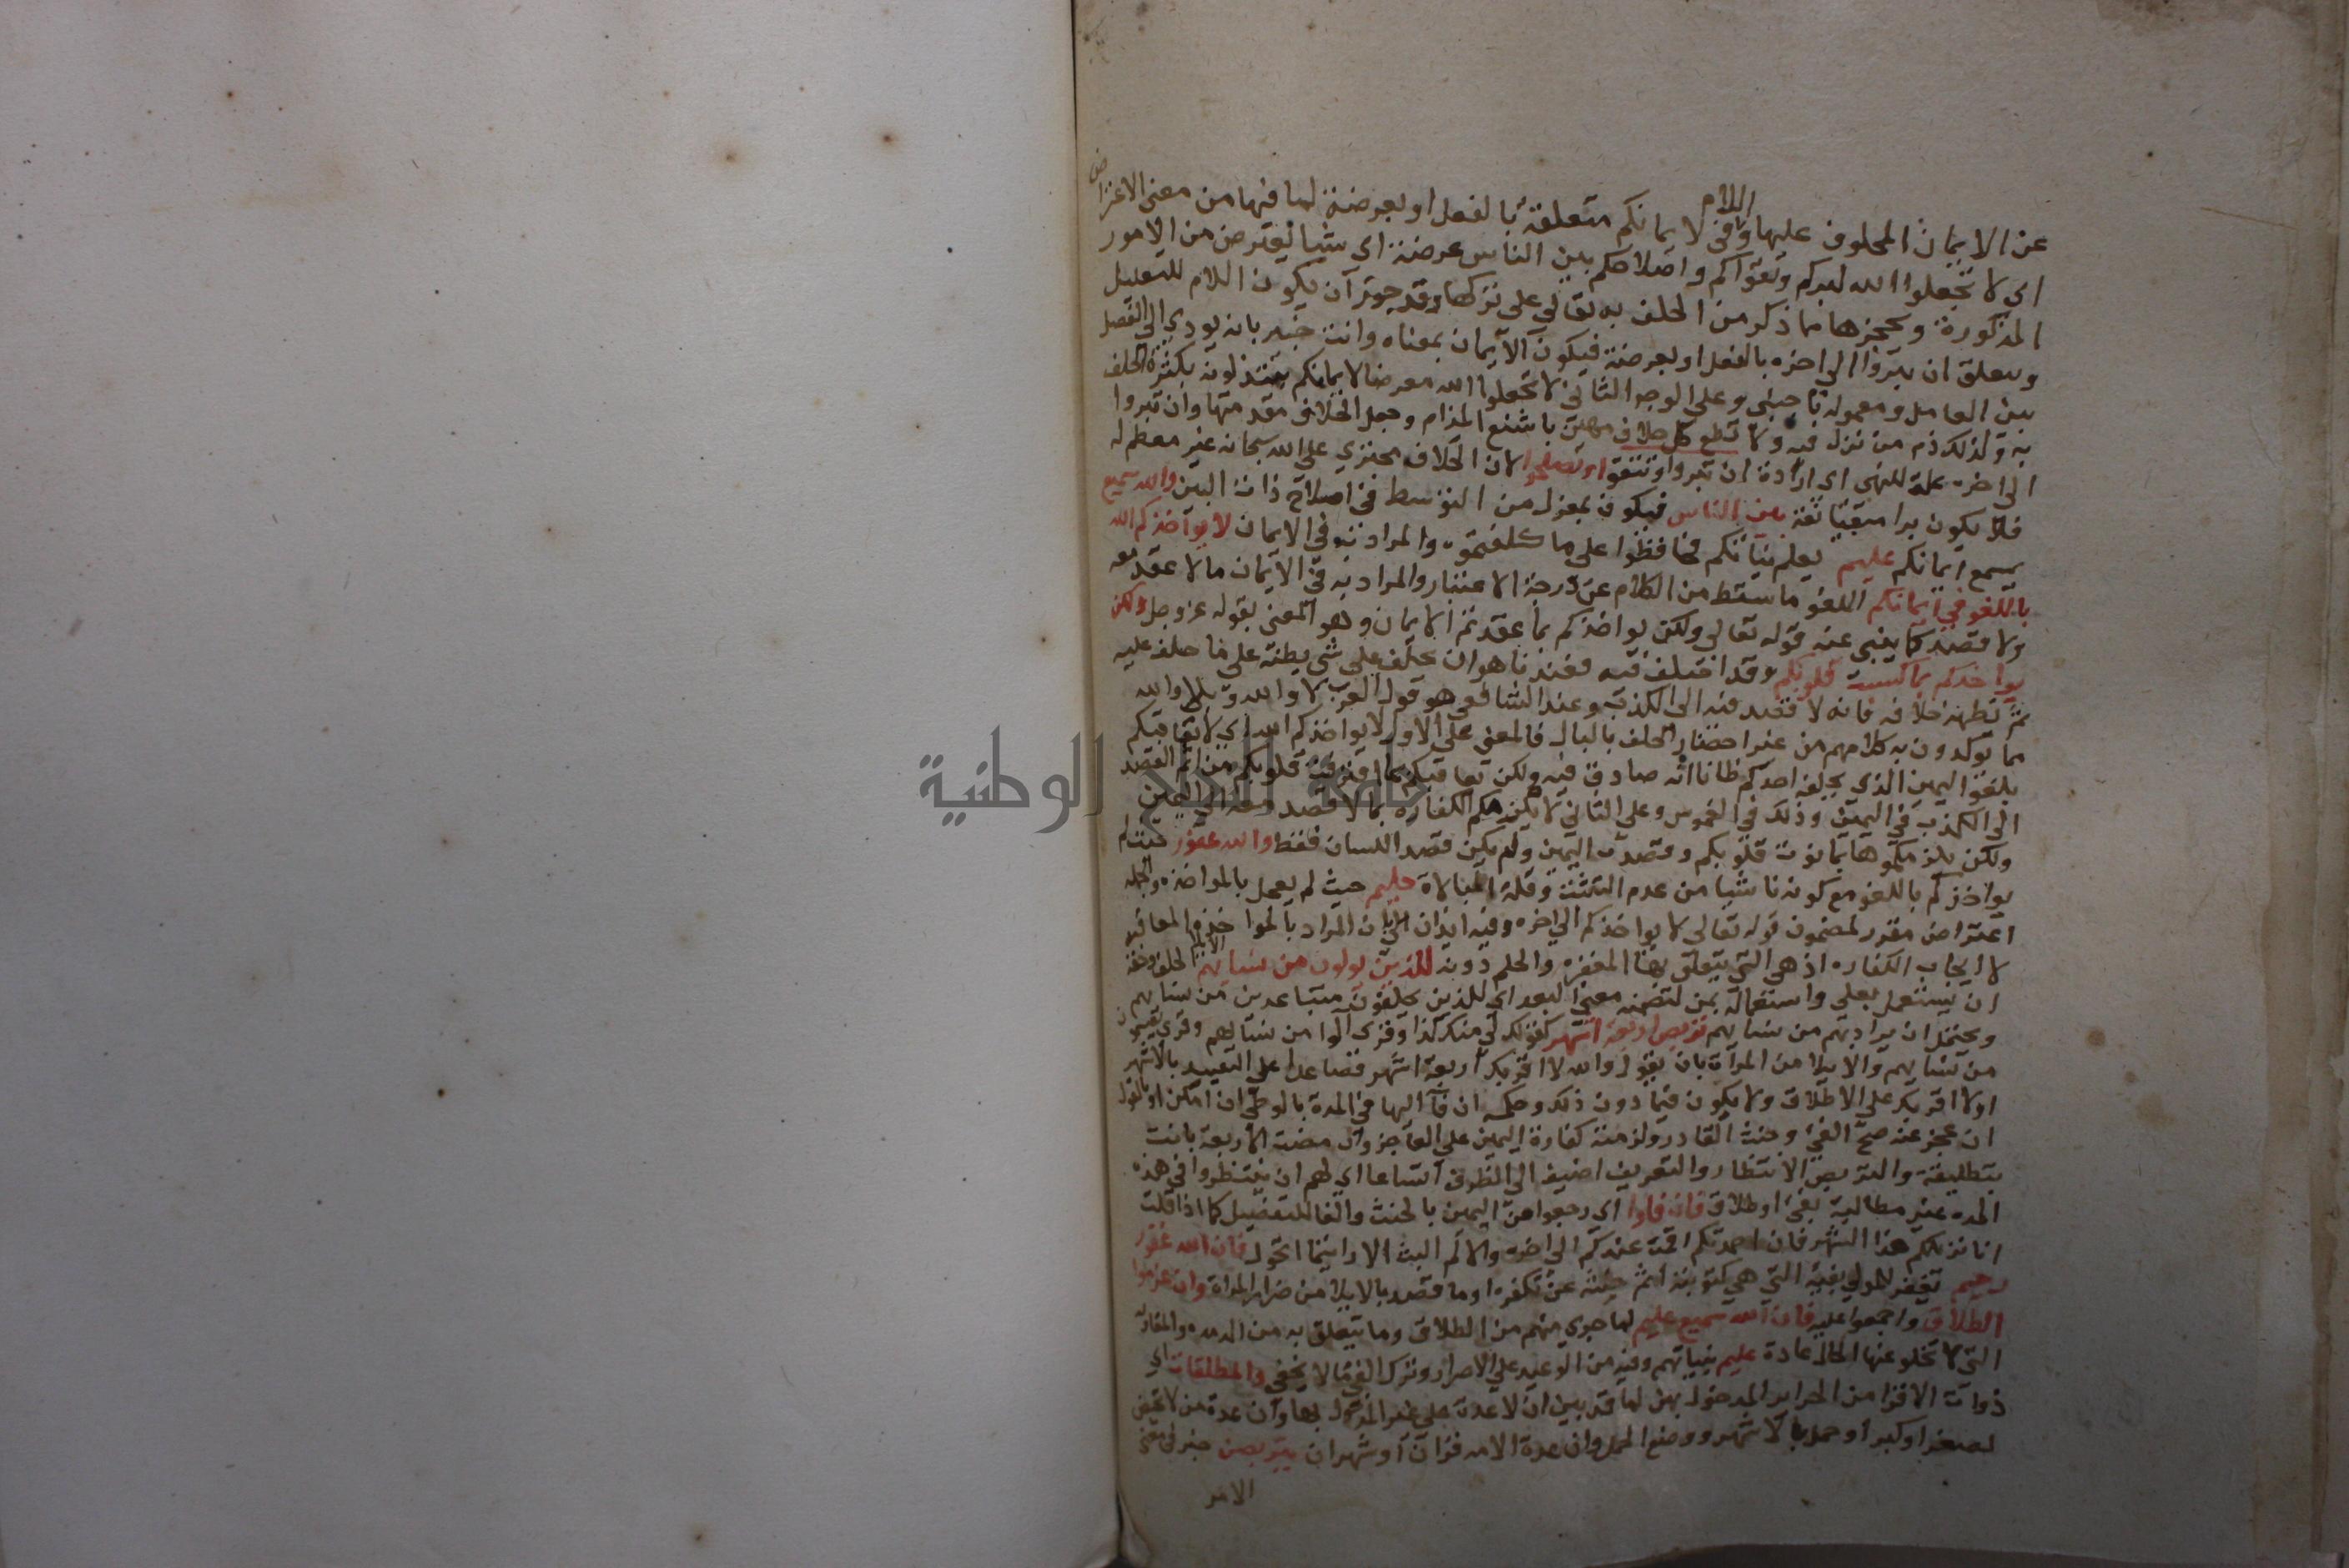 عن الايمان المحلوف عليها واللام في لايمانكم متعلقة بالفعل او بعرضة لما فيها من معنى الاعتراض
اي لا تجعلوا الله لبركم وتقواكم واصلاحكم بين الناس عرضة اي شيا يعترض من الامور
المذكورة ويحجزها مما ذكر من الحلف به تعالى على تركها وقد جوز ان يكون اللام للتعليل
ويتعلق ان تبروا الى اخره بالفعل او بعرضة فيكون الايمان بمعناه وانت خبير بانه يودي الى الفصل
بين العامل ومعموله باجنبي وعلى الوجه الثاني لا تجعلوا الله معرضا لايمانكم تبتذلونه بكثرة الحلف
به ولذلك ذم من نزل فيه ولا تطع كل حلاف مهين باشنع المذام وجعل الحلاف مقدمتها وان تبروا
الى اخره علة للنهى اى ارادة ان تبروا وتتقوا وتصلحوا لان الحلاف مجتري على الله سبحانه غير معظم له
فلا يكون برا متقيا ثقة بين الناس فيكون بمعزل من التوسط في اصلاح ذات البين والله سميع
يسمع ايمانكم عليم يعلم نياتكم فحافظوا على ما كلفتموه لا يواخذكم الله
باللغو في ايمانكم اللغو ما سقط من الكلام عن درجة الاعتبار والمراد به في الايمان ما لا عقد معه
ولا قصد كما ينبي عنه قوله تعالى ولكن يواخذكم بما عقدتم الايمان وهو المعنى بقوله عز وجل ولكن
يواخذكم بما كسبت قلوبكم وقد اختلف فيه فعندنا هو ان يحلف على شي يظنه على ما حلف عليه
ثم يظهر خلافه فانه لا قصد فيه الى الكذب وعند الشافعي هو قول العرب لا والله وبلا والله
مما يوكدون به كلامهم من غير اخطار الحلف بالبال فالمعنى على الاول لا يواخذكم الله اي لا يعاقبكم
بلغو اليمين الذي يحلفه احدكم ظانا انه صادق فيه ولكن يعاقبكم بما اقترفته قلوبكم من اثم القصد
الى الكذب في اليمين وذلك في الغموس وعلى الثاني لا يلزمكم الكفارة بما لا قصد معه الى اليمين
ولكن يلزمكموها بما نوت قلوبكم وقصدت اليمين ولم يكن قصد اللسان فقط والله غفور حيث لم
يواخذكم باللغو مع كونه ناشيا من عدم التثبت وقلة المبالاة حليم حيث لم يعجل بالمواخذه والجملة
اعتراض مقرر لمضمون قوله تعالى لا يواخذكم الى اخره وفيه ايذان بان المراد بالمواخذه المعاقبه
لا ايجاب الكفاره اذ هي التي يتعلق بها المغفره والحلم دونه للذين يولون من نسايهم الايلا الحلف وحقه
ان يستعمل بعلى واستعماله بمن لتضمنه معنى البعد اي للذين يحلفون متباعدين من نسايهم
ويحتمل ان يراد لهم من نسايهم تربص اربعة اشهر كقولك لي منك كذا وقري الوا من نسايهم وقري يقسمون
من نسايهم والايلا من المراة بان يقول والله لا اقربك اربعة اشهر فصاعدا على التقييد بالاشهر
او لا اقربك على الاطلاق ولا يكون فيما دون ذلك وحكمه ان فآ اليها في المدة بالوطي ان امكن او بالقول
ان عجز عنه صح الفي وحنث القادر ولزمته كفارة اليمين على العاجز وان مضت الاربعة بانت
بتطليقة والتربص الانتظار والتعريف اضيف الى الظرف اتساعا اي لهم ان ينتظروا في هذه
المده غير مطالبة بفي او طلاق فان فاوا اي رجعوا عن اليمين بالحنث والفا للتفصيل كما اذا قلت
انا نزيلكم هذا الشهر فان احمدتكم اقمت عندكم الى اخره والا لم البث الا ريثما اتحول فان الله غفور
رحيم يغفر للمولي بفيه التي هي كتوبته اثم حنثه عن تكفره او ما قصد بالايلا من ضرار المراة وان عزموا
الطلاق واجمعوا عليه فان الله سميع عليم لما جرى منهم من الطلاق وما يتعلق به من الدمدمه والمقاوله
التي لا تخلو عنها الحال عادة عليم بنياتهم وفيه من الوعيد على الاصرار وترك الفي ما لا يخفى والمطلقات اي
ذوات الاقرا من الحراير المدخول بهن لما قد بين ان لا عدة على غير المدخول بها وان عدة من لا تحيض
لصغر او كبر او حمل بالاشهر ووضع الحمل وان عدة الامه قران او شهران يتربصن خبر في معنى
الامر
جامعة النجاح الوطنية